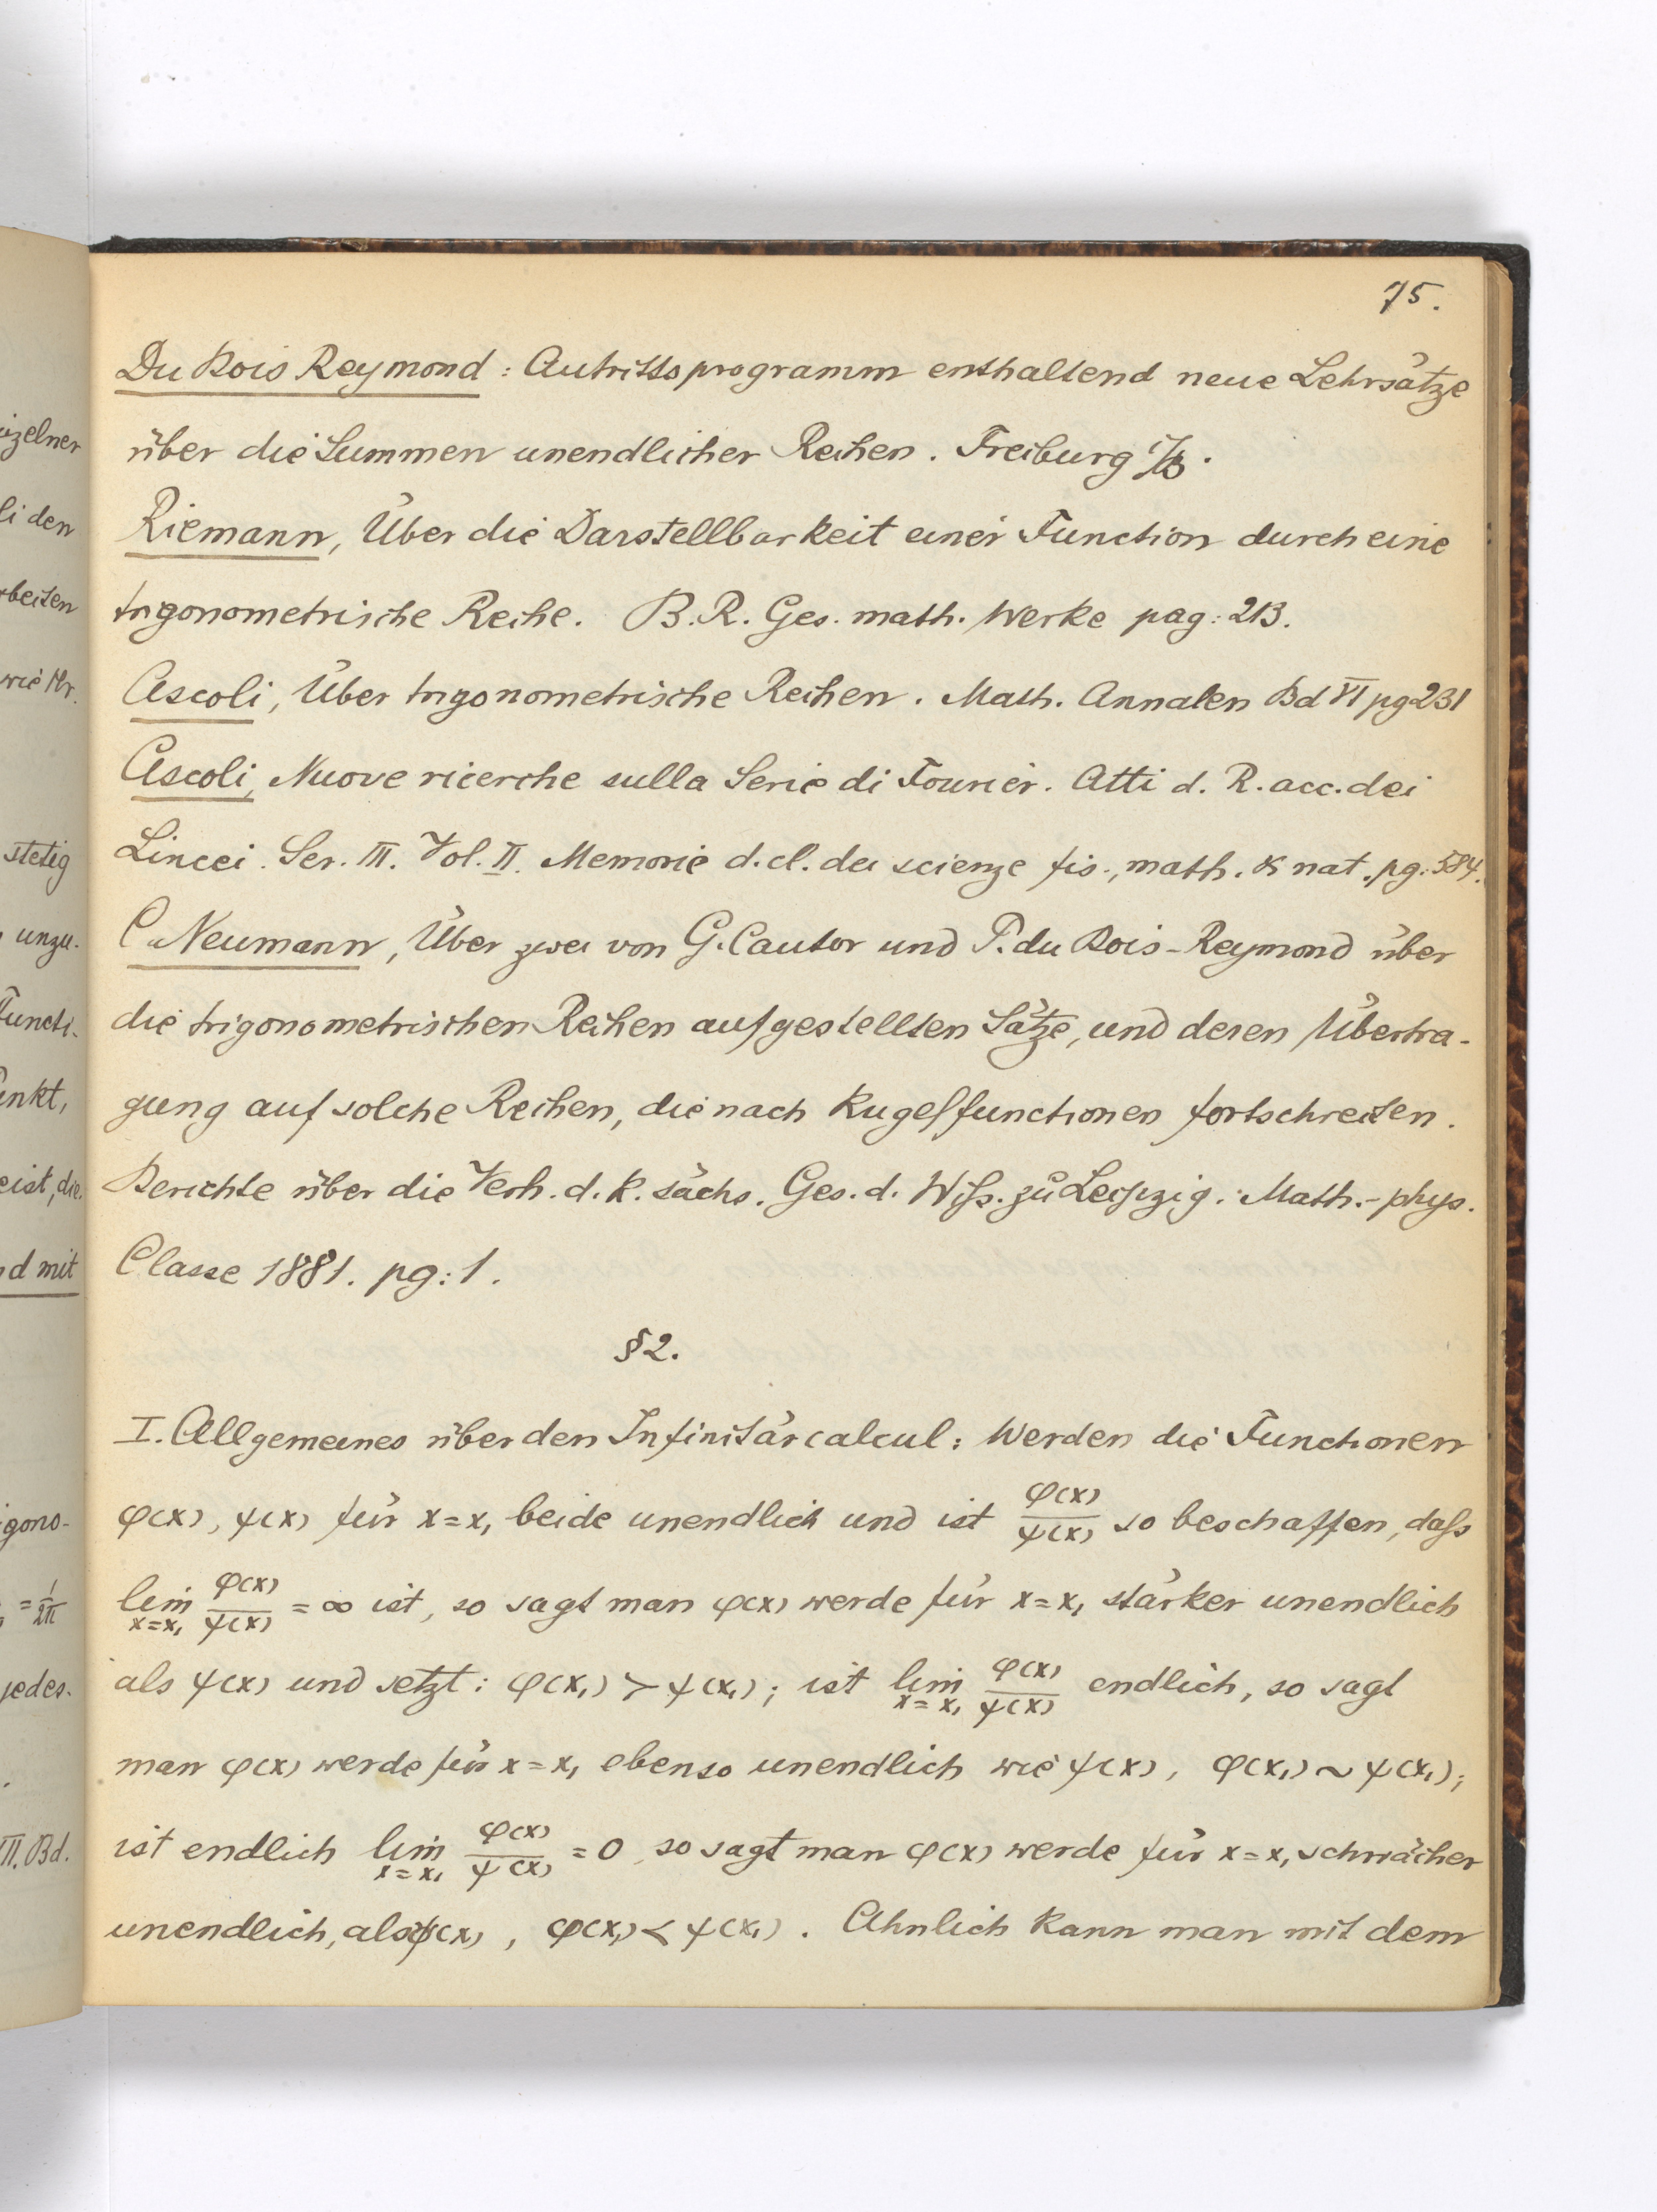 75.
Du Bois Reymond : Antrittsprogramm enthaltend neue Lehrsätze
über die Summen unendlicher Reihen. Freiburg i/B.
Riemann, Über die Darstellbarkeit einer Function durch eine
trigonometrische Reihe. B. R. Ges. math. Werke pag: 213.
Ascoli, Über trigonometrische Reihen. Math. Annalen Bd VI pg 231
Ascoli, Nuove ricerche sulla Serie di Fourier. Atti d. R. acc. dei
Lincei. Ser. III. Vol. II. Memorie d. cl. dei scienze fis., math. & nat. pg: 584.
C. Neumann, Über zwei von G. Cantor und P. du Bois-Reymond über
die trigonometrischen Reihen aufgestellten Sätze, und deren Übertra-
gung auf solche Reihen, die nach Kugelfunctionen fortschreiten.
Berichte über die Verh. d. k. sächs. Ges. d. Wiß. zu Leipzig. Math.-phys.
Classe 1881. pg: 1.
§ 2.
I. Allgemeines über den Infinitärcalcul: Werden die Functionen
φ(x), ψ(x) für x = x₁ beide unendlich und ist φ(x)/ψ(x) so beschaffen, daß
lim x=x₁ φ(x)/ψ(x) = ∞ ist, so sagt man φ(x) werde für x = x₁ stärker unendlich
als ψ(x) und setzt: φ(x₁) > ψ(x₁); ist lim x=x₁ φ(x)/ψ(x) endlich, so sagt
man φ(x) werde für x = x₁ ebenso unendlich wie ψ(x), φ(x₁) ~ ψ(x₁);
ist endlich lim x=x₁ φ(x)/ψ(x) = 0, so sagt man φ(x) werde für x = x₁ schwächer
unendlich, als ψ(x), φ(x₁) < ψ(x₁). Ähnlich kann man mit dem
izelner
li den
rbeiten
wie Hr.
stetig
unzu-
Functi-
inkt,
eist, die
d mit
igono-
= 1/2π
jedes-
III. Bd.